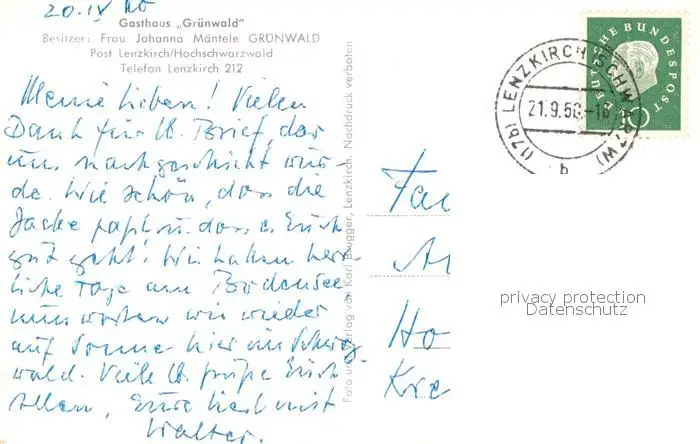 20.IX 60
Gasthaus „Grünwald"
Besitzer: Frau Johanna Mäntele GRÜNWALD
Post Lenzkirch/Hochschwarzwald
Telefon Lenzkirch 212
Meine Lieben! Vielen
Dank für lb. Brief, der
uns nachgeschickt wur
de. Wie schön, dass die
Jacke passt u. dass es Euch
gut geht! Wir haben herr
liche Tage am Bodensee
nun warten wir wieder
auf Sonne hier im Schwarz
wald. Viele lb. Grüße Euch
allen, Eure
Walter.
Foto und Verlag von Karl Brugger, Lenzkirch. Nachdruck verboten
DEUTSCHE BUNDESPOST
10
(17b) LENZKIRCH (SCHWARZW)
21.9.60.-16
b
Fa
Ho
Kre
privacy protection
Datenschutz